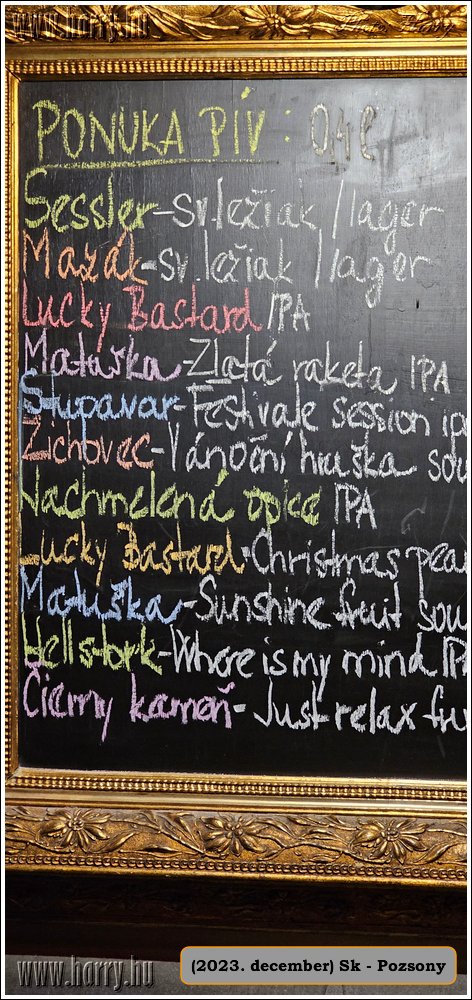 www.harry.hu
PONUKA PÍV: 0,4l
Sessler-sv.ležiak/lager
Mazák-sv.ležiak/lager
Lucky Bastard IPA
Matuška-Zlatá raketa IPA
Stupavar-Festivale session ip
Zichovec-Vánoční hruška sou
Nachmelená opice IPA
Lucky Bastard-Christmas pea
Matuška-Sunshine fruit sou
Hellstork-Where is my mind IPA
Čierny kameň-Just relax fru
www.harry.hu
(2023. december) Sk - Pozsony